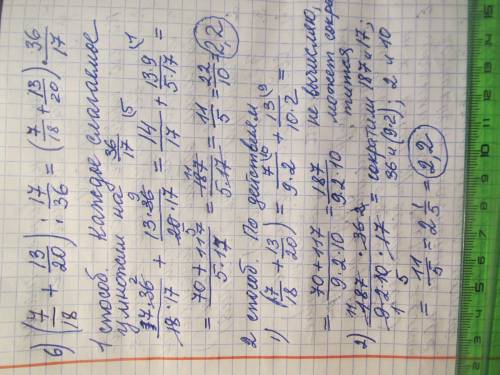 б) (7/18 + 13/20) : 17/36 = (7/18 + 13/20) · 36/17
1 способ. Каждое слагаемое
умножаем на 36/17
7·36/18·17 + 13·36/20·17 = 14/17 + 13·9/5·17 =
= 70+117/5·17 = 187/5·17 = 11/5 = 22/10 = 2,2
2 способ. По действиям
1) (7/18 + 13/20) = 7/9·2 + 13/10·2 =
= 70+117/9·2·10 = 187/9·2·10 не вычислю,
может сокра-
тится
2) 187·36/9·2·10·17 = сократили 187 и 17;
36 и (9·2); 2 и 10
= 11/5 = 2 1/5 = 2,2